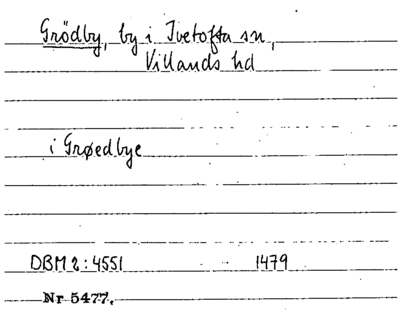 Grödby, by i Ivetofta sn,
Villands hd
i Grøedbye
DBM 2:4551 1479
Nr 5477.